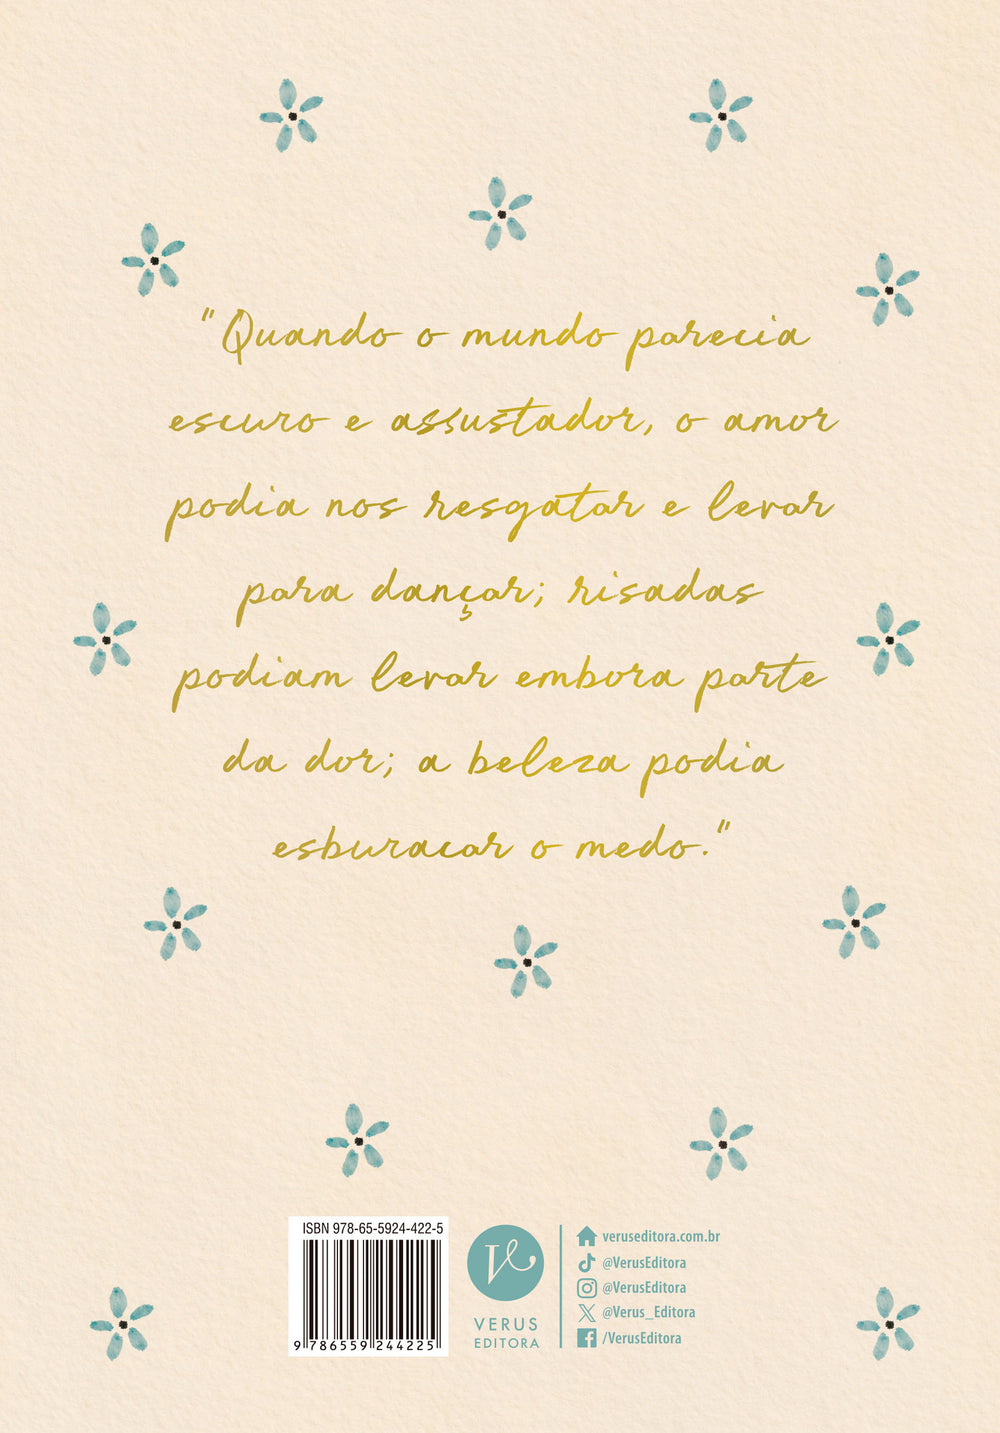 "Quando o mundo parecia
escuro e assustador, o amor
podia nos resgatar e levar
para dançar; risadas
podiam levar embora parte
da dor; a beleza podia
esburacar o medo."
ISBN 978-65-5924-422-5
9 786559 244225
VE
VERUS
EDITORA
veruseditora.com.br
@VerusEditora
@VerusEditora
@Verus_Editora
/VerusEditora